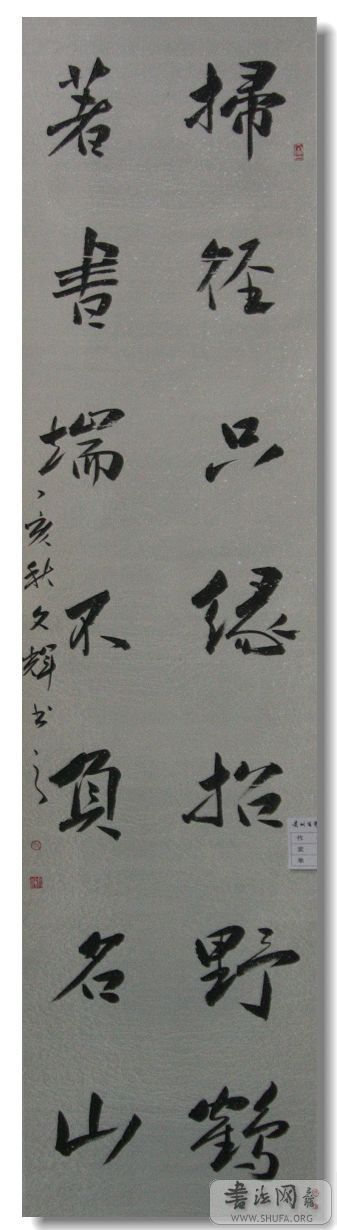 掃径只緣招野鶴
著書端不負名山
丁亥秋文輝書之
書法网
WWW.SHUFA.ORG